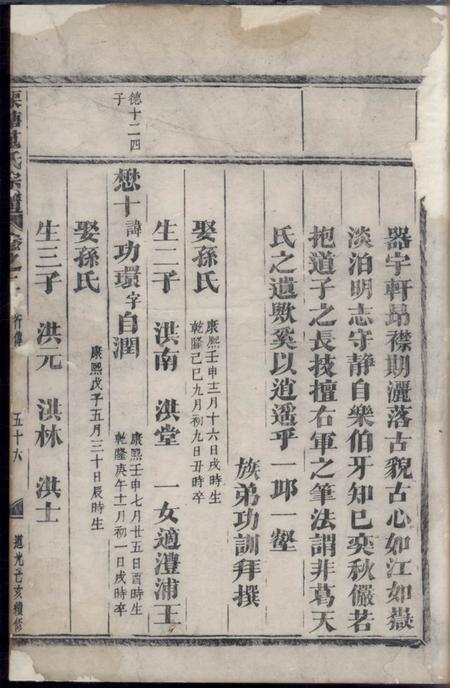 器宇軒昂襟期灑落古貌古心如江如嶽
淡泊明志守静自樂伯牙知已奕秋儼若
抱道子之長技擅右軍之筆法謂非葛天
氏之遺歟奚以逍遥乎一邱一壑
族弟功訓拜撰
娶孫氏
康熙壬申十二月十六日戌時生
乾隆己巳九月初九日丑時卒
生二子 洪南 洪堂 一女適澧浦王
德十二四
子
懋十諱功環字自潤
康熙壬申七月廿五日酉時生
乾隆庚午十一月初一日戌時卒
娶孫氏
康熙戊子五月三十日辰時生
生三子 洪元 洪林 洪士
氏宗譜 卷之 行傳 五十六 道光己亥續修